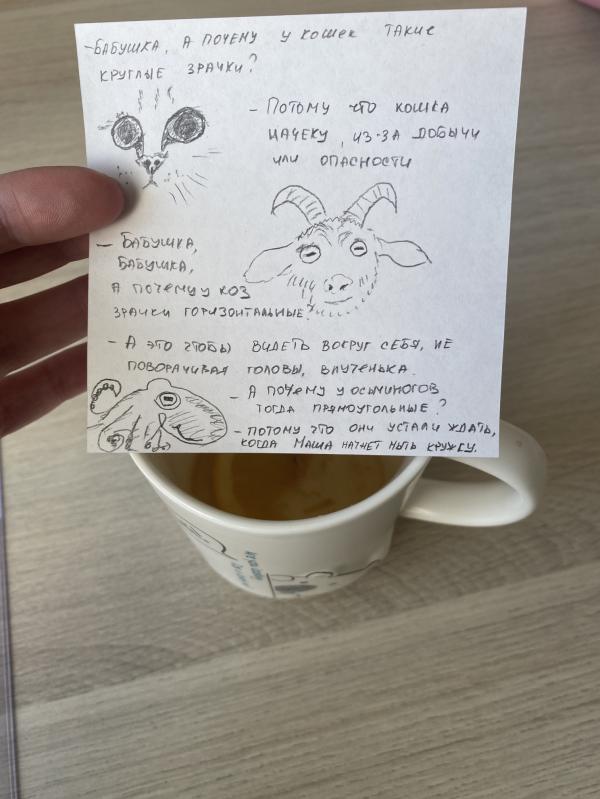 - БАБУШКА, А ПОЧЕМУ У КОШЕК ТАКИЕ
КРУГЛЫЕ ЗРАЧКИ?
- ПОТОМУ ЧТО КОШКА
НАЧЕКУ, ИЗ-ЗА ДОБЫЧИ
ИЛИ ОПАСНОСТИ
- БАБУШКА,
БАБУШКА,
А ПОЧЕМУ У КОЗ
ЗРАЧКИ ГОРИЗОНТАЛЬНЫЕ?
- А ЭТО ЧТОБЫ ВИДЕТЬ ВОКРУГ СЕБЯ, НЕ
ПОВОРАЧИВАЯ ГОЛОВЫ, ВНУЧЕНЬКА.
- А ПОЧЕМУ У ОСЬМИНОГОВ
ТОГДА ПРЯМОУГОЛЬНЫЕ?
- ПОТОМУ ЧТО ОНИ УСТАЛИ ЖДАТЬ,
КОГДА МАША НАЧНЕТ МЫТЬ КРУЖКУ.